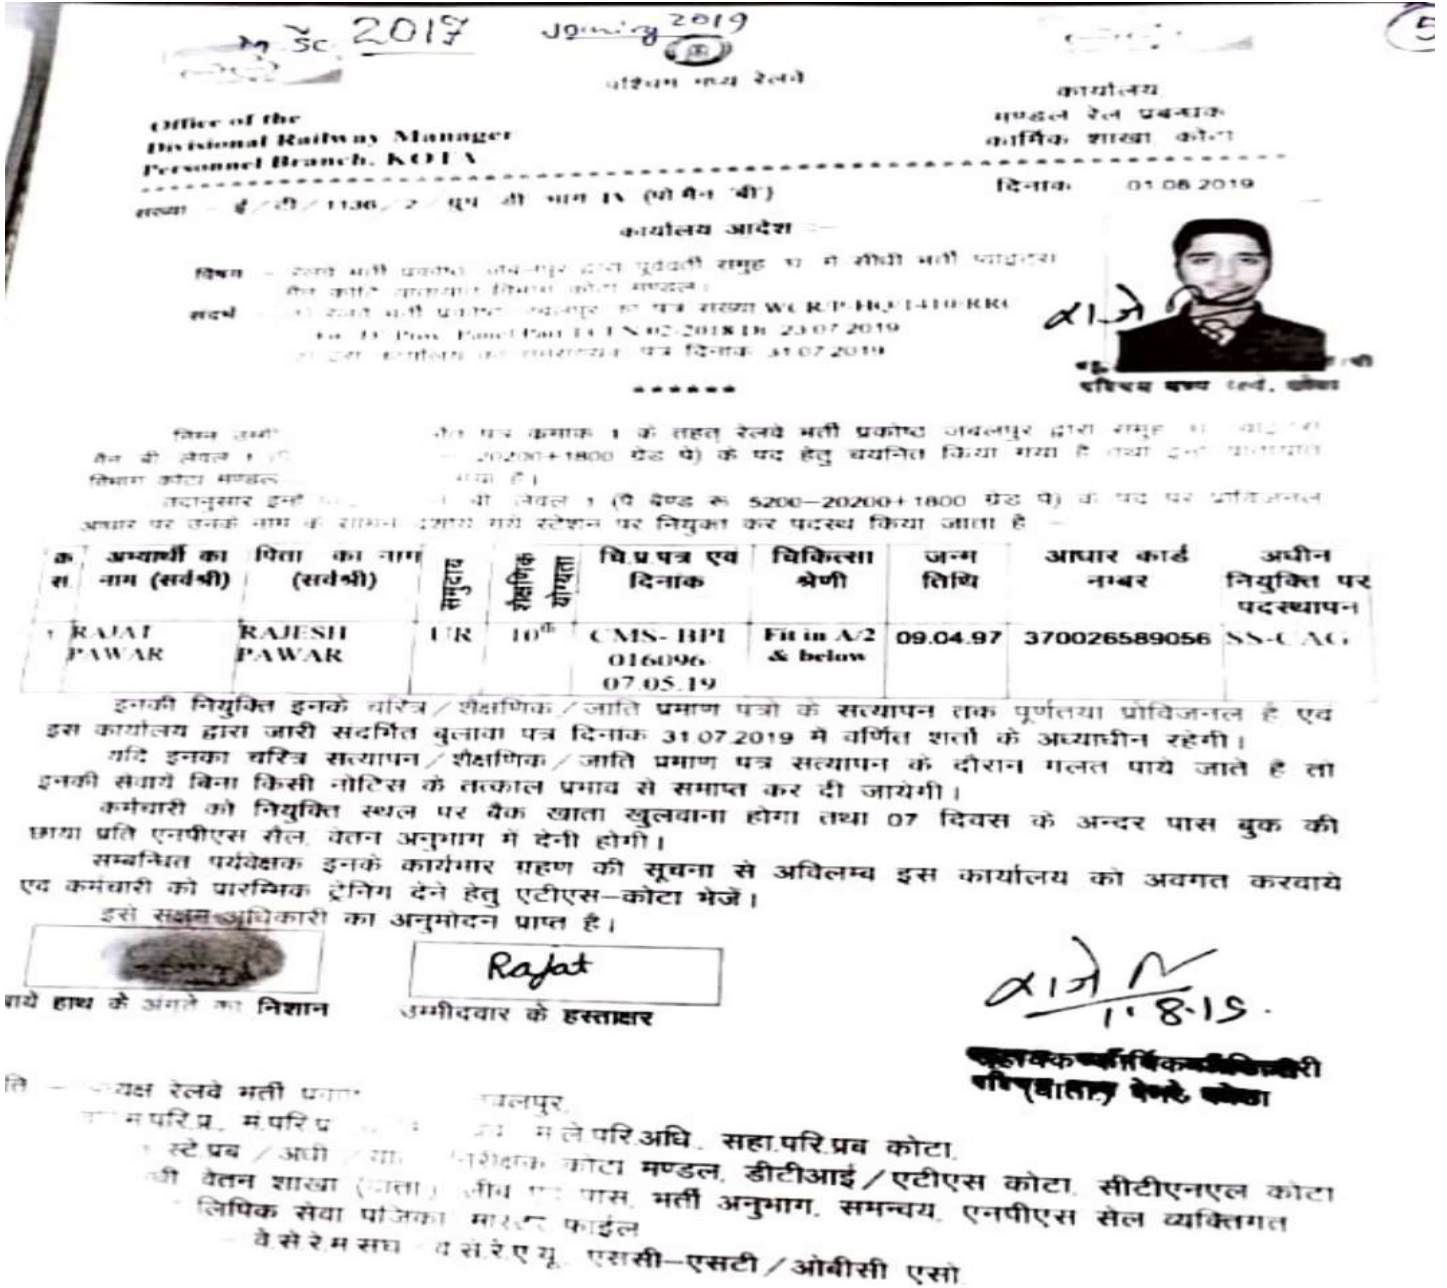 M.Sc. 2017
Joining 2019
5
पश्चिम मध्य रेलवे
Office of the
Divisional Railway Manager
Personnel Branch, KOTA
कार्यालय
मण्डल रेल प्रबन्धक
कार्मिक शाखा, कोटा
संख्या - ई/टी/1136/2/ग्रुप डी भाग IX (पी मैन 'बी')
दिनांक 01.08.2019
कार्यालय आदेश :-
विषय - रेलवे भर्ती प्रकोष्ठ, जबलपुर द्वारा पूर्ववर्ती समुह 'घ' में सीधी भर्ती प्वाइंटस
मैन कोटि यातायात विभाग कोटा मण्डल।
संदर्भ - रेलवे भर्ती प्रकोष्ठ, जबलपुर का पत्र संख्या WCR/P-HQ/1410/RRC
Panel Part 02-2018 Dt. 23.07.2019
इस कार्यालय का पत्र दिनांक 31.07.2019
पश्चिम मध्य रेल्वे, कोटा
******
निम्न पत्र कमांक 1 के तहत् रेलवे भर्ती प्रकोष्ठ जबलपुर द्वारा समुह
मैन बी लेवल 1 20200+1800 ग्रेड पे) के पद हेतु चयनित किया गया है तथा इन्हे यातायात
विभाग कोटा मण्डल गया है।
तदानुसार इन्हे बी लेवल 1 (पै बैण्ड रू 5200-20200+1800 ग्रेड पे) के पद पर प्रोविजनल
आधार पर उनके नाम के सामने दर्शाये गये स्टेशन पर नियुक्त कर पदस्थ किया जाता है -
क्र सं. अभ्यार्थी का नाम (सर्वश्री) पिता का नाम (सर्वश्री) समुदाय शैक्षणिक योग्यता चि.प्र.पत्र एवं दिनांक चिकित्सा श्रेणी जन्म तिथि आधार कार्ड नम्बर अधीन नियुक्ति पर पदस्थापन
1 RAJAT PAWAR RAJESH PAWAR UR 10th CMS-BPL 016096 07.05.19 Fit in A/2 & below 09.04.97 370026589056 SS-CAG
इनकी नियुक्ति इनके चरित्र/शैक्षणिक/जाति प्रमाण पत्रो के सत्यापन तक पूर्णतया प्रोविजनल है एवं
इस कार्यालय द्वारा जारी संदर्भित बुलावा पत्र दिनांक 31.07.2019 में वर्णित शर्तो के अध्याधीन रहेगी।
यदि इनका चरित्र सत्यापन/शैक्षणिक/जाति प्रमाण पत्र सत्यापन के दौरान गलत पाये जाते है तो
इनकी सेवायें बिना किसी नोटिस के तत्काल प्रभाव से समाप्त कर दी जायेगी।
कर्मचारी को नियुक्ति स्थल पर बैंक खाता खुलवाना होगा तथा 07 दिवस के अन्दर पास बुक की
छाया प्रति एनपीएस सैल, वेतन अनुभाग में देनी होगी।
सम्बन्धित पर्यवेक्षक इनके कार्यभार ग्रहण की सूचना से अविलम्ब इस कार्यालय को अवगत करवाये
एवं कर्मचारी को प्रारम्भिक ट्रेनिंग देने हेतु एटीएस-कोटा भेजें।
इसे सक्षम अधिकारी का अनुमोदन प्राप्त है।
Rajat
बाये हाथ के अंगूठे का निशान
उम्मीदवार के हस्ताक्षर
1.8.19
प्रति - अध्यक्ष रेलवे भर्ती जबलपुर,
म.परि.प्र., मं.परि.प्र म.ले.परि.अधि., सहा.परि.प्रब कोटा,
स्टे.प्रब/अधी कोटा मण्डल, डीटीआई/एटीएस कोटा, सीटीएनएल कोटा
वेतन शाखा (याता.) पास, भर्ती अनुभाग, समन्वय, एनपीएस सेल व्यक्तिगत
लिपिक सेवा पंजिका मास्टर फाईल
वे.से.रे.म.संघ एससी-एसटी/ओबीसी एसो